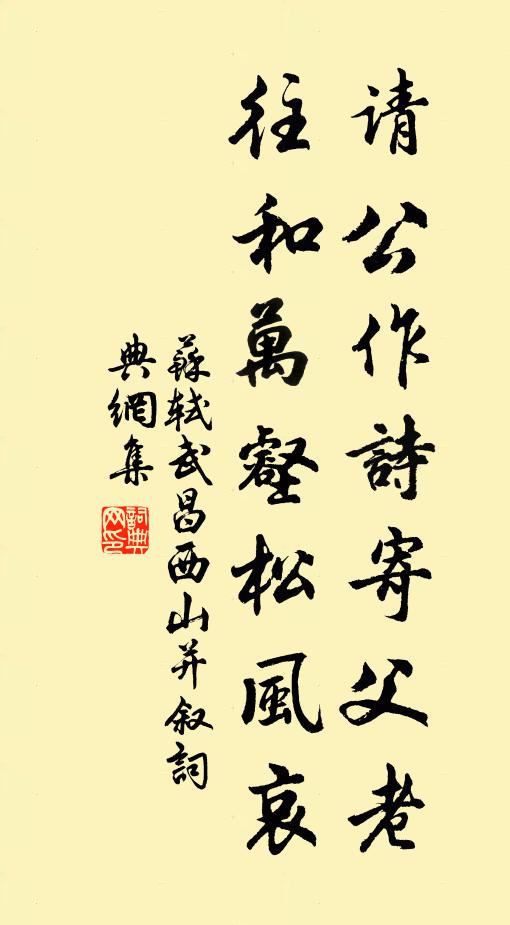 请公作詩寄父老
往和萬壑松風哀
蘇軾武昌西山并叙詞
典網集
詞典网印